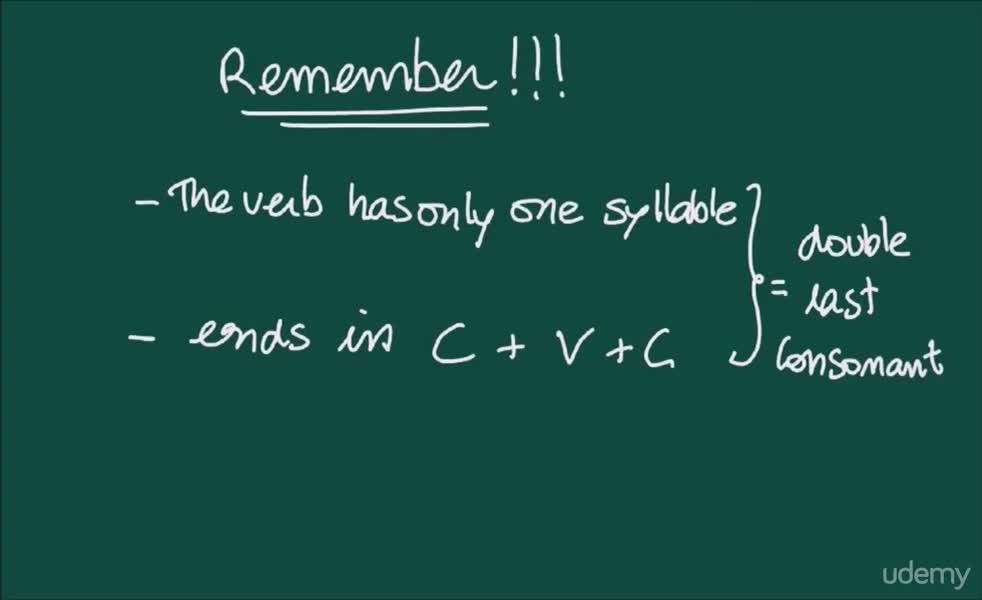 Remember!!!
- The verb has only one syllable
- ends in C + V + C
= double
last
Consonant
udemy